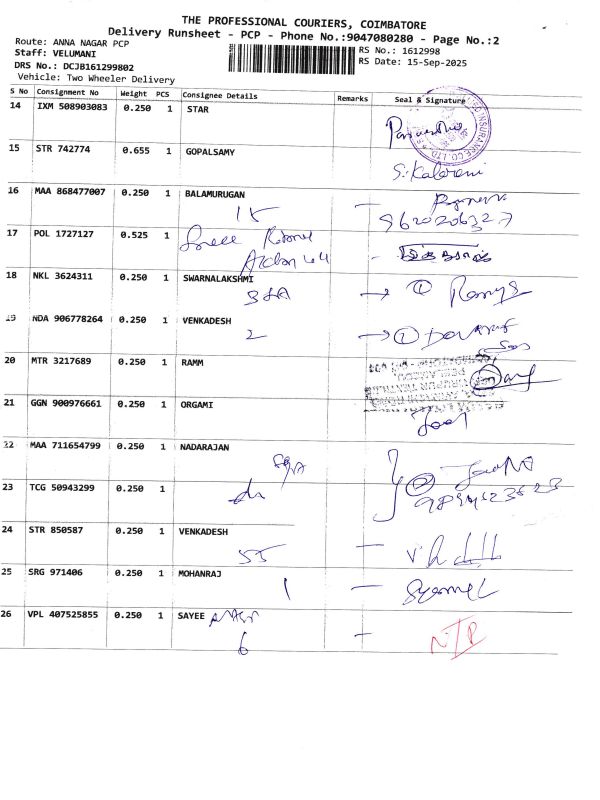 THE PROFESSIONAL COURIERS, COIMBATORE
Delivery Runsheet - PCP - Phone No.:9047080280 - Page No.:2
Route: ANNA NAGAR PCP RS No.: 1612998
Staff: VELUMANI RS Date: 15-Sep-2025
DRS No.: DCJB161299802
Vehicle: Two Wheeler Delivery
S No Consignment No Weight PCS Consignee Details Remarks Seal & Signature
14 IXM 508903083 0.250 1 STAR
INSURANCE CO. LTD.
15 STR 742774 0.655 1 GOPALSAMY
16 MAA 868477007 0.250 1 BALAMURUGAN
9620206327
17 POL 1727127 0.525 1 Sree
18 NKL 3624311 0.250 1 SWARNALAKSHMI
1 Ramya
19 NDA 906778264 0.250 1 VENKADESH
2 1
20 MTR 3217689 0.250 1 RAMM
21 GGN 900976661 0.250 1 ORGAMI
22 MAA 711654799 0.250 1 NADARAJAN
23 TCG 50943299 0.250 1
24 STR 850587 0.250 1 VENKADESH
55
25 SRG 971406 0.250 1 MOHANRAJ
1
26 VPL 407525855 0.250 1 SAYEE
6